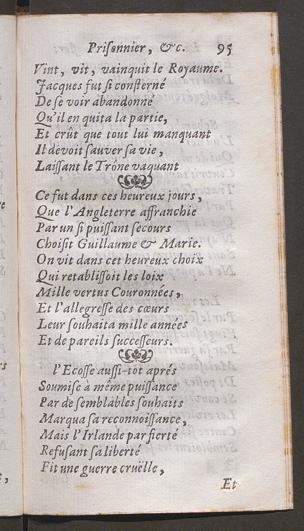 Prisonnier, &c. 95
Vint, vit, vainquit le Royaume.
Jacques fut si consterné
De se voir abandonné
Qu'il en quita la partie,
Et crût que tout lui manquant
Il devoit sauver sa vie,
Laissant le Trône vaquant
Ce fut dans ces heureux jours,
Que l'Angleterre affranchie
Par un si puissant secours
Choisit Guillaume & Marie.
On vit dans cet heureux choix
Qui retablissoit les loix
Mille vertus Couronnées,
Et l'allegresse des cœurs
Leur souhaita mille années
Et de pareils successeurs.
l'Ecosse aussi-tôt aprés
Soumise à même puissance
Par de semblables souhaits
Marqua sa reconnoissance,
Mais l'Irlande par fierté
Refusant sa liberté
Fit une guerre cruëlle,
Et